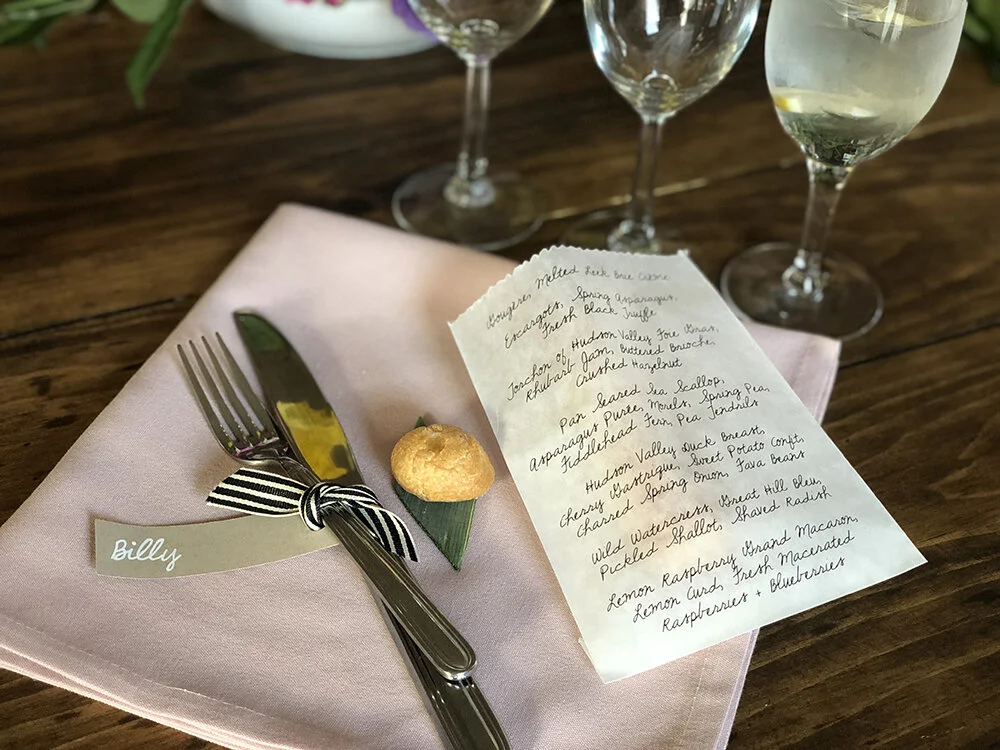 Billy
Gougere, Melted Leek Brie Crème
Escargots, Spring Asparagus,
Fresh Black Truffle
Torchon of Hudson Valley Foie Gras,
Rhubarb Jam, Buttered Brioche,
Crushed Hazelnut
Pan Seared Sea Scallop,
Asparagus Purée, Morels, Spring Pea,
Fiddlehead Fern, Pea Tendrils
Hudson Valley Duck Breast,
Cherry Gastrique, Sweet Potato Confit,
Charred Spring Onion, Fava Beans
Wild Watercress, Great Hill Bleu,
Pickled Shallot, Shaved Radish
Lemon Raspberry Grand Macaron,
Lemon Curd, Fresh Macerated
Raspberries + Blueberries